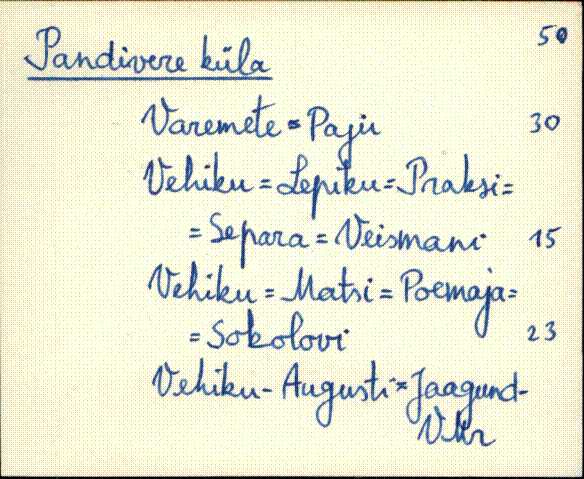 50
Pandivere küla
Varemete = Paju 30
Vehiku = Lepiku = Praksi =
= Separa = Veismani 15
Vehiku = Matsi = Poemaja =
= Sokolovi 23
Vehiku - Augusti = Jaagund-